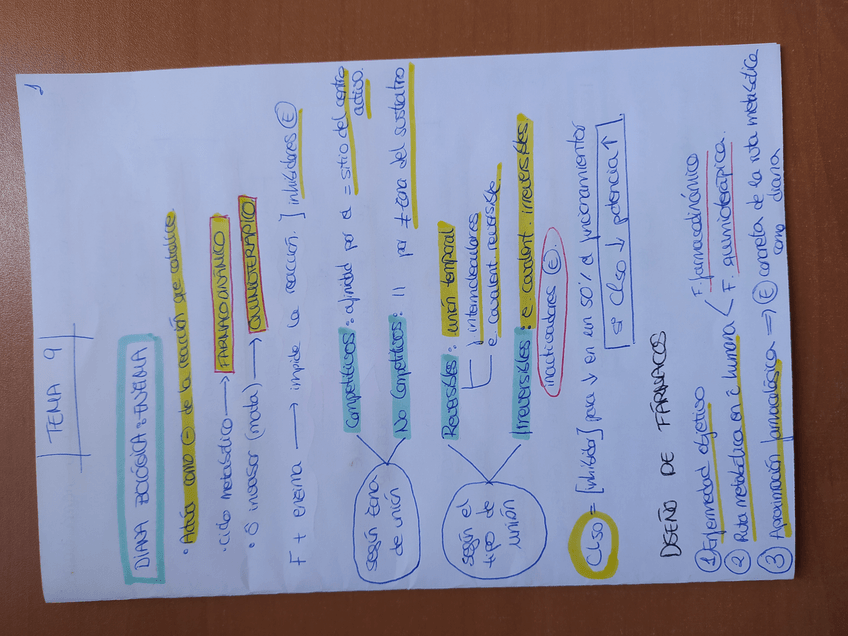 1
TEMA 9
DIANA BIOLÓGICA: ENZIMA
• Actúa como ⊖ de la reacción que cataliza
• Ciclo metabólico → FARMACODINÁMICO
• Ó invasor (mata) → QUIMIOTERÁPIO
F + enzima → impide la reacción. ] inhibidores Ⓔ
según zona de unión
Competitivos: afinidad por el = sitio del centro activo.
No Competitivos: " por ≠ zona del sustrato
según el tipo de unión
Reversibles: unión temporal
intermoleculares
e covalent. reversible.
Irreversibles: e. covalent. irreversibles
inactivadores Ⓔ.
CI50 = [inhibidor] para ↓ en un 50% el funcionamiento
si CI50 ↓ potencia ↑
DISEÑO DE FÁRMACOS
① Enfermedad objetivo
② Ruta metabólica en ĉ humana < F. farmacodinámico
F. quimioterápica.
③ Aproximación farmacológica ⇒ Ⓔ concreta de la ruta metabólica
como diana